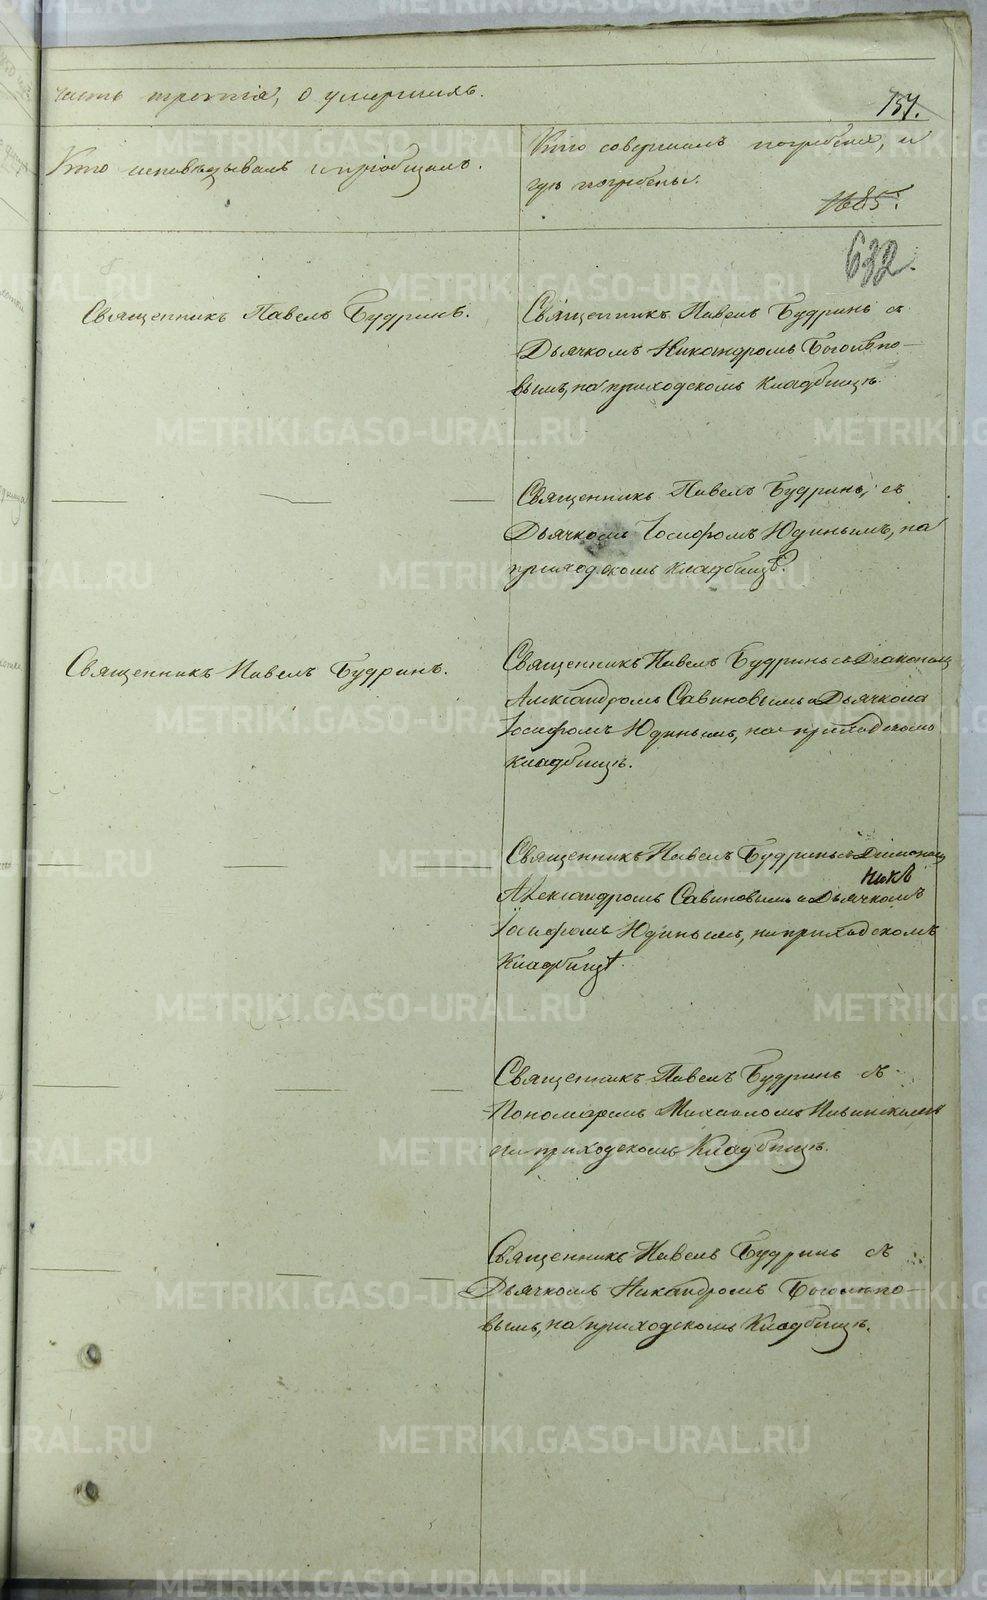 часть третія, о умершихъ.
157.
Кто исповѣдывалъ и пріобщалъ.
Кто совершалъ погребеніе, и
гдѣ погребены.
1685.
632.
Священникъ Павелъ Будринъ.
Священникъ Павелъ Будринъ съ
Дьячкомъ Никандромъ
вымъ, на приходскомъ кладбищѣ.
Священникъ Павелъ Будринъ, съ
Дьячкомъ Іосифомъ Юдинымъ, на
приходскомъ кладбищѣ.
Священникъ Павелъ Будринъ.
Священникъ Павелъ Будринъ съ Діакономъ
Александромъ Савиновымъ и Дьячкомъ
Іосифомъ Юдинымъ, на приходскомъ
кладбищѣ.
Священникъ Павелъ Будринъ съ Діакономъ
Александромъ Савиновымъ и Дьячкомъ
Іосифомъ Юдинымъ, на приходскомъ
Кладбищѣ.
Священникъ Павелъ Будринъ съ
Пономаремъ Михаиломъ
на приходскомъ Кладбищѣ.
Священникъ Павелъ Будринъ съ
Дьячкомъ Никандромъ
вымъ, на приходскомъ Кладбищѣ.
METRIKI.GASO-URAL.RU